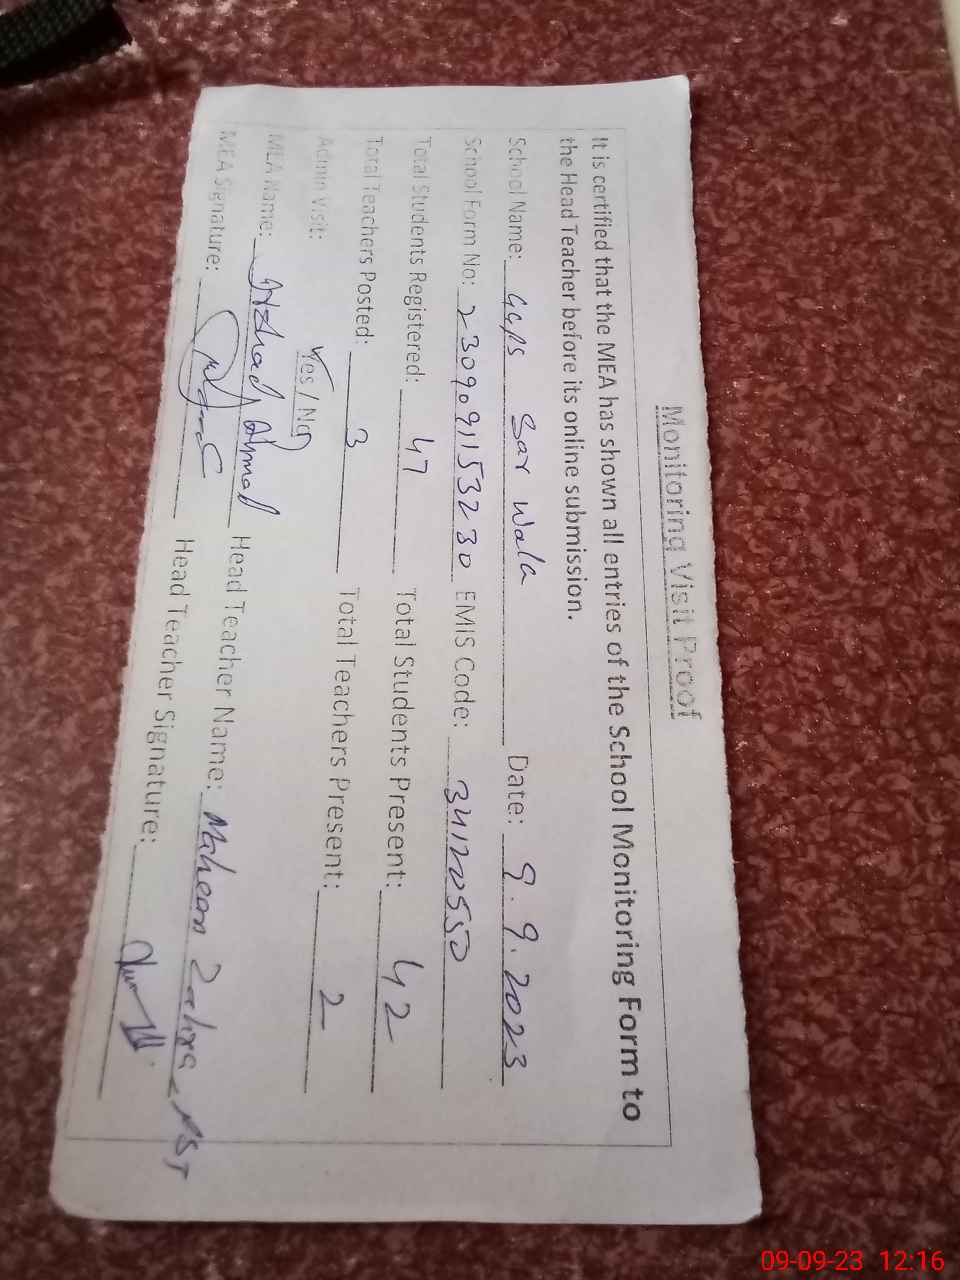 Monitoring Visit Proof
It is certified that the MEA has shown all entries of the School Monitoring Form to
the Head Teacher before its online submission.
School Name: GGPS Sar Wala Date: 9.9.2023
School Form No: 230909153230 EMIS Code: 34120550
Total Students Registered: 47 Total Students Present: 42
Total Teachers Posted: 3 Total Teachers Present: 2
Admin Visit: Yes / No
MEA Name: Azhad Ahmad Head Teacher Name: Maheen Zahra PST
MEA Signature: Head Teacher Signature:
09-09-23 12:16